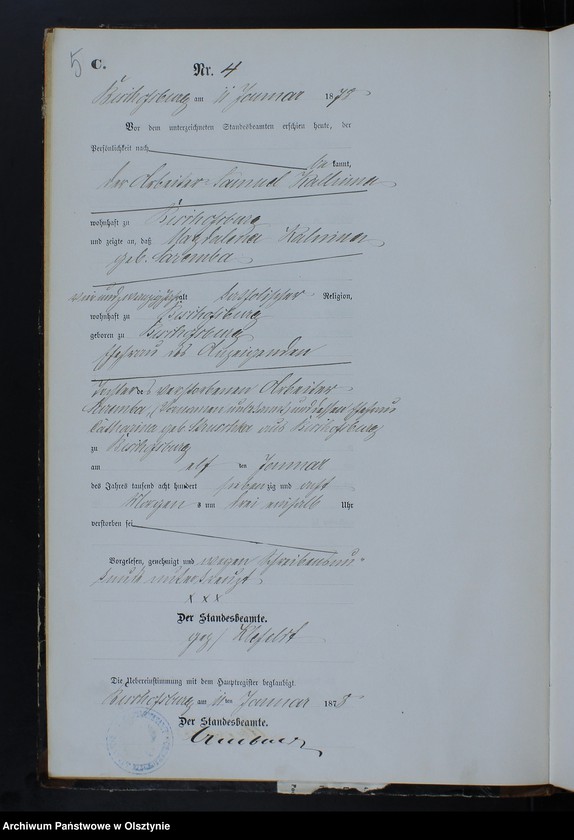 5 C.
Nr. 4
Bischofsburg am 11 Januar 1878
Vor dem unterzeichneten Standesbeamten erschien heute, der
Persönlichkeit nach
be kannt,
der Arbeiter Samuel Kallinna
wohnhaft zu Bischofsburg
und zeigte an, daß Magdalena Kalinna
geb.
alt katholischer Religion,
wohnhaft zu Bischofsburg
geboren zu Bischofsburg
Ehefrau des Anzeigenden
Tochter des verstorbenen Arbeiter
und dessen Ehefrau
Catharina geb. aus Bischofsburg
zu Bischofsburg
am elf ten Januar
des Jahres tausend acht hundert siebenzig und acht
Morgens um drei einhalb Uhr
verstorben sei
Vorgelesen, genehmigt und wegen Schreibensun-
kunde unterkreuzt
x x x
Der Standesbeamte.
gez/
Die Uebereinstimmung mit dem Hauptregister beglaubigt.
Bischofsburg am 11ten Januar 1878
Der Standesbeamte.
Archiwum Państwowe w Olsztynie